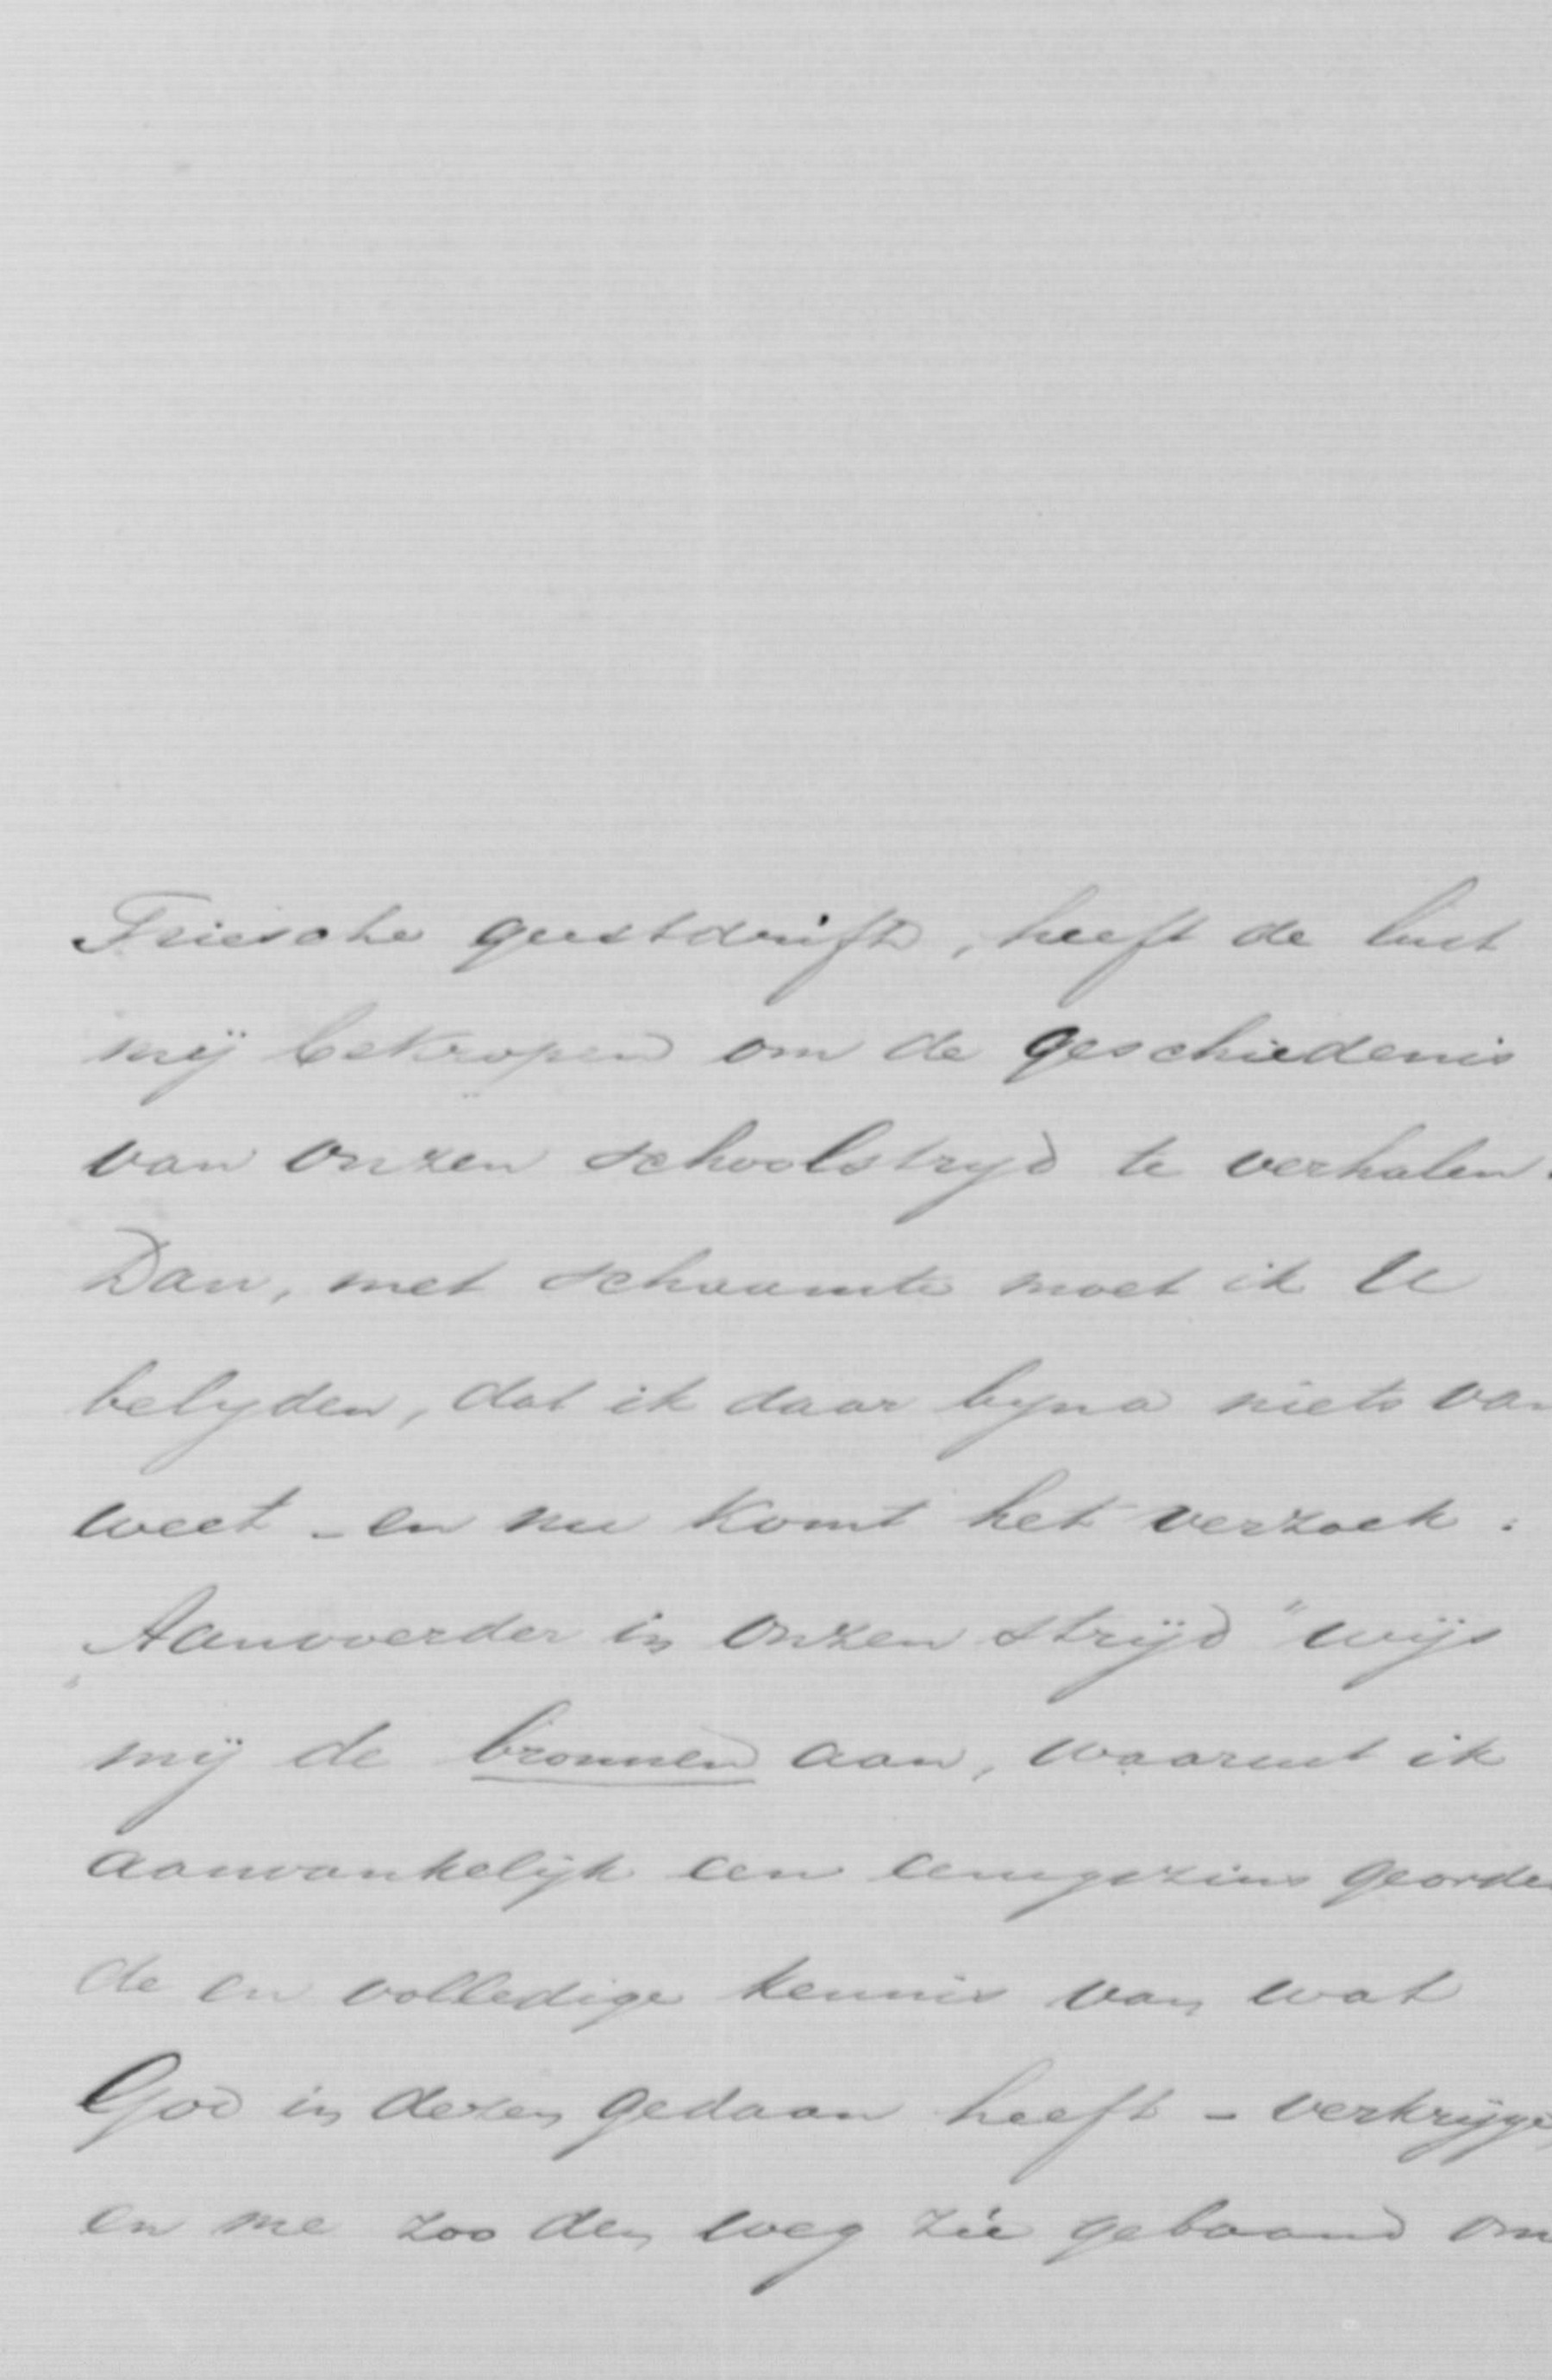 Friesche geestdrift, heeft de lust
mij bekropen om de geschiedenis
van onzen schoolstryd te verhalen.
Dan, met schaamte moet ik U
belyden, dat ik daar byna niets van
weet - en nu komt het verzoek:
„Aanvoerder in onzen strijd" wijs
mij de bronnen aan, waaruit ik
aanvankelijk een eenigszins georden
de en volledige kennis van wat
God in dezen gedaan heeft - verkrijge,
en me zoo den weg zie gebaand om